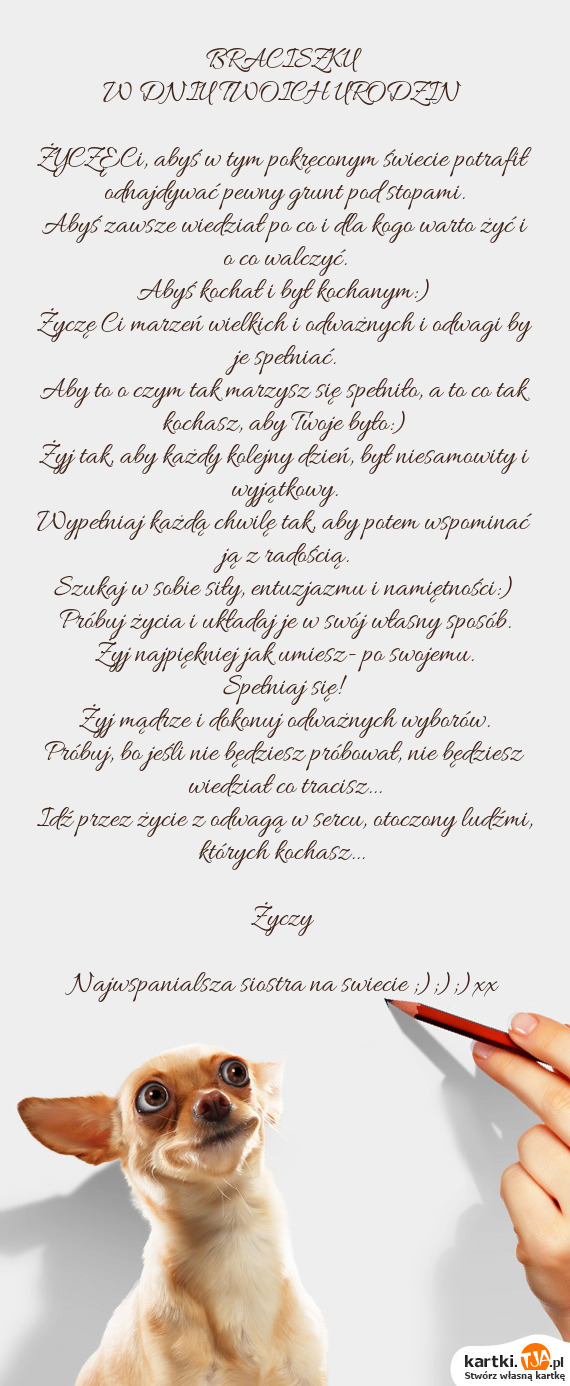 BRACISZKU
W DNIU TWOICH URODZIN
ŻYCZĘ Ci, abyś w tym pokręconym świecie potrafił
odnajdywać pewny grunt pod stopami.
Abyś zawsze wiedział po co i dla kogo warto żyć i
o co walczyć.
Abyś kochał i był kochanym:)
Życzę Ci marzeń wielkich i odważnych i odwagi by
je spełniać.
Aby to o czym tak marzysz się spełniło, a to co tak
kochasz, aby Twoje było:)
Żyj tak, aby każdy kolejny dzień, był niesamowity i
wyjątkowy.
Wypełniaj każdą chwilę tak, aby potem wspominać
ją z radością.
Szukaj w sobie siły, entuzjazmu i namiętności:)
Próbuj życia i układaj je w swój własny sposób.
Żyj najpiękniej jak umiesz- po swojemu.
Spełniaj się!
Żyj mądrze i dokonuj odważnych wyborów.
Próbuj, bo jeśli nie będziesz próbował, nie będziesz
wiedział co tracisz...
Idź przez życie z odwagą w sercu, otoczony ludźmi,
których kochasz...
Życzy
Najwspanialsza siostra na swiecie ;) ;) ;) xx
kartki.TJA.pl
Stwórz własną kartkę